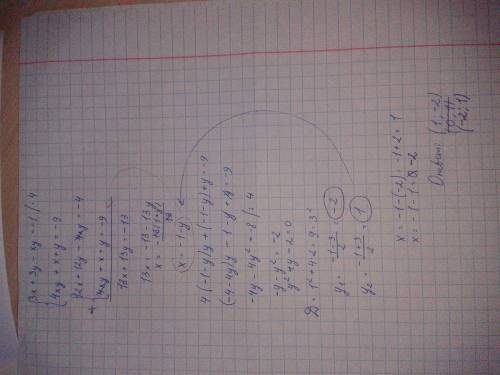 3x + 3y - xy = -1 | · 4
4xy + x + y = -9
12x + 12y - 4xy = -4
+ 4xy + x + y = -9
13x + 13y = -13
13x = -13 - 13y
x = -13(1+y) / 13
x = -1 - y
4·(-1-y)y + (-1-y) + y = -9
(-4-4y)y - 1 - y + y = -9
-4y - 4y² = -8 | : 4
-y - y² = -2
y² + y - 2 = 0
D = 1² + 4·2 = 9 = 3²
y₁ = (-1-3)/2 = -2
y₂ = (-1+3)/2 = 1
x = -1-(-2) = -1+2 = 1
x = -1-1 = -2
Ответ: (1; -2)
(-2; 1)